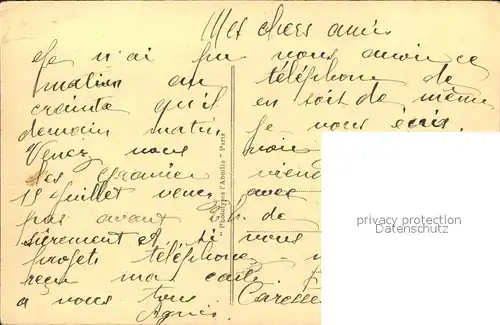 Mes chers amis
Je n'ai pu vous avoir ce
matin au téléphone de
crainte qu'il en soit de même
demain matin je vous écris.
Venez nous voir
les
15 juillet venez avec
pas avant 3h. de
et si vous
projets téléphonez
reçu ma carte
à vous tous Caresse
Agnès.
" Phototypie l'Abeille " Paris
privacy protection
Datenschutz